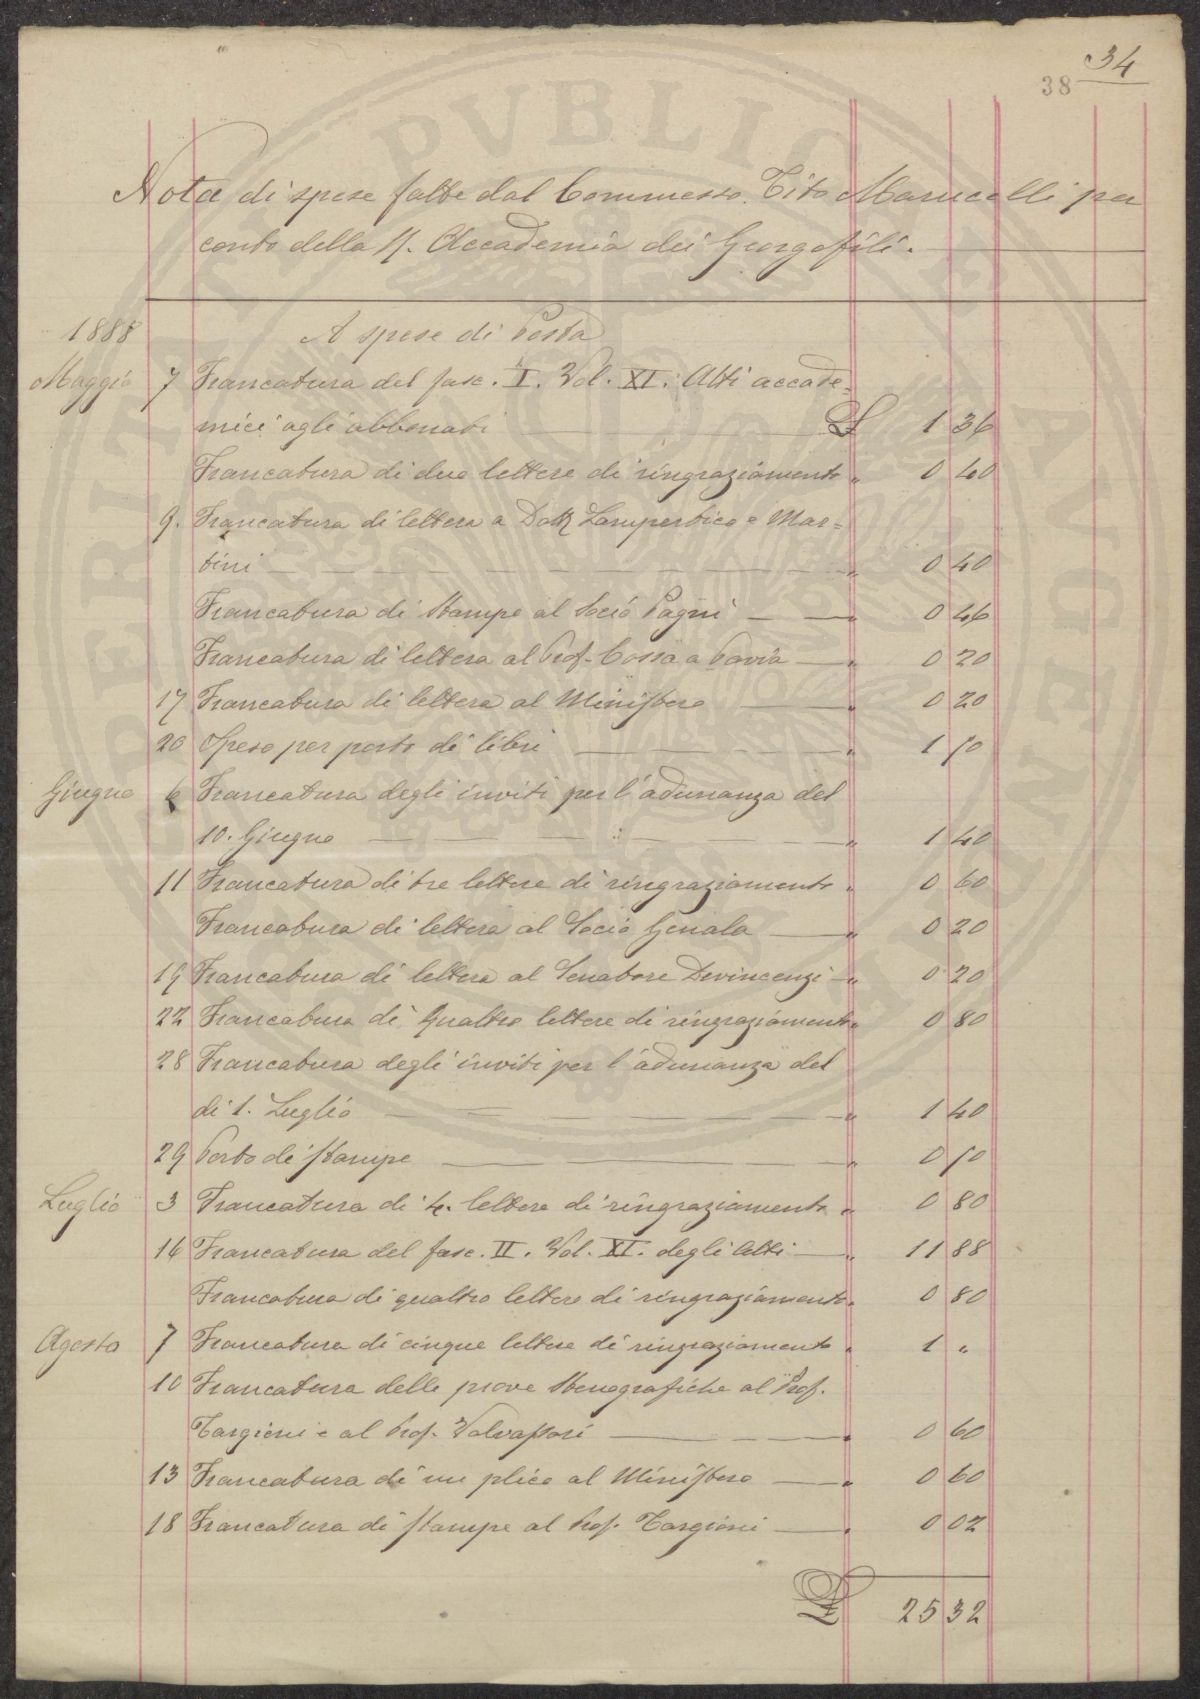 34
38
Nota di spese fatte dal Commesso Tito Marucelli per
conto della R. Accademia dei Georgofili.
1888 A spese di Posta
Maggio 7 Francatura del fasc. I. Vol. XI. Atti accade=
mici agli abbonati £ 1 36
Francatura di due lettere di ringraziamento " 0 40
9. Francatura di lettera a Dott Lampertico e Mar=
tini " 0 40
Francatura di Stampe al Socio Pagni " 0 46
Francatura di lettera al Prof. Cossa a Pavia " 0 20
17 Francatura di lettera al Ministero " 0 20
20 Spese per porto di libri " 1 10
Giugno 6 Francatura degli inviti per l'adunanza del
10. Giugno " 1 40
11 Francatura di tre lettere di ringraziamento " 0 60
Francatura di lettera al Socio Genala " 0 20
19 Francatura di lettera al Senatore Devincenzi " 0 20
22 Francatura di Quattro lettere di ringraziamento " 0 80
28 Francatura degli inviti per l'adunanza del
di 1. Luglio " 1 40
29 Porto di stampe " 0 10
Luglio 3 Francatura di 4. lettere di ringraziamento " 0 80
16 Francatura del fasc. II. Vol. XI. degli Atti " 11 88
Francatura di quattro lettere di ringraziamento " 0 80
Agosto 7 Francatura di cinque lettere di ringraziamento " 1 "
10 Francatura delle prove Stenografiche al Prof.
Targioni e al Prof. Valvassori " 0 60
13 Francatura di un plico al Ministero " 0 60
18 Francatura di stampe al Prof. Targioni " 0 02
£ 25 32